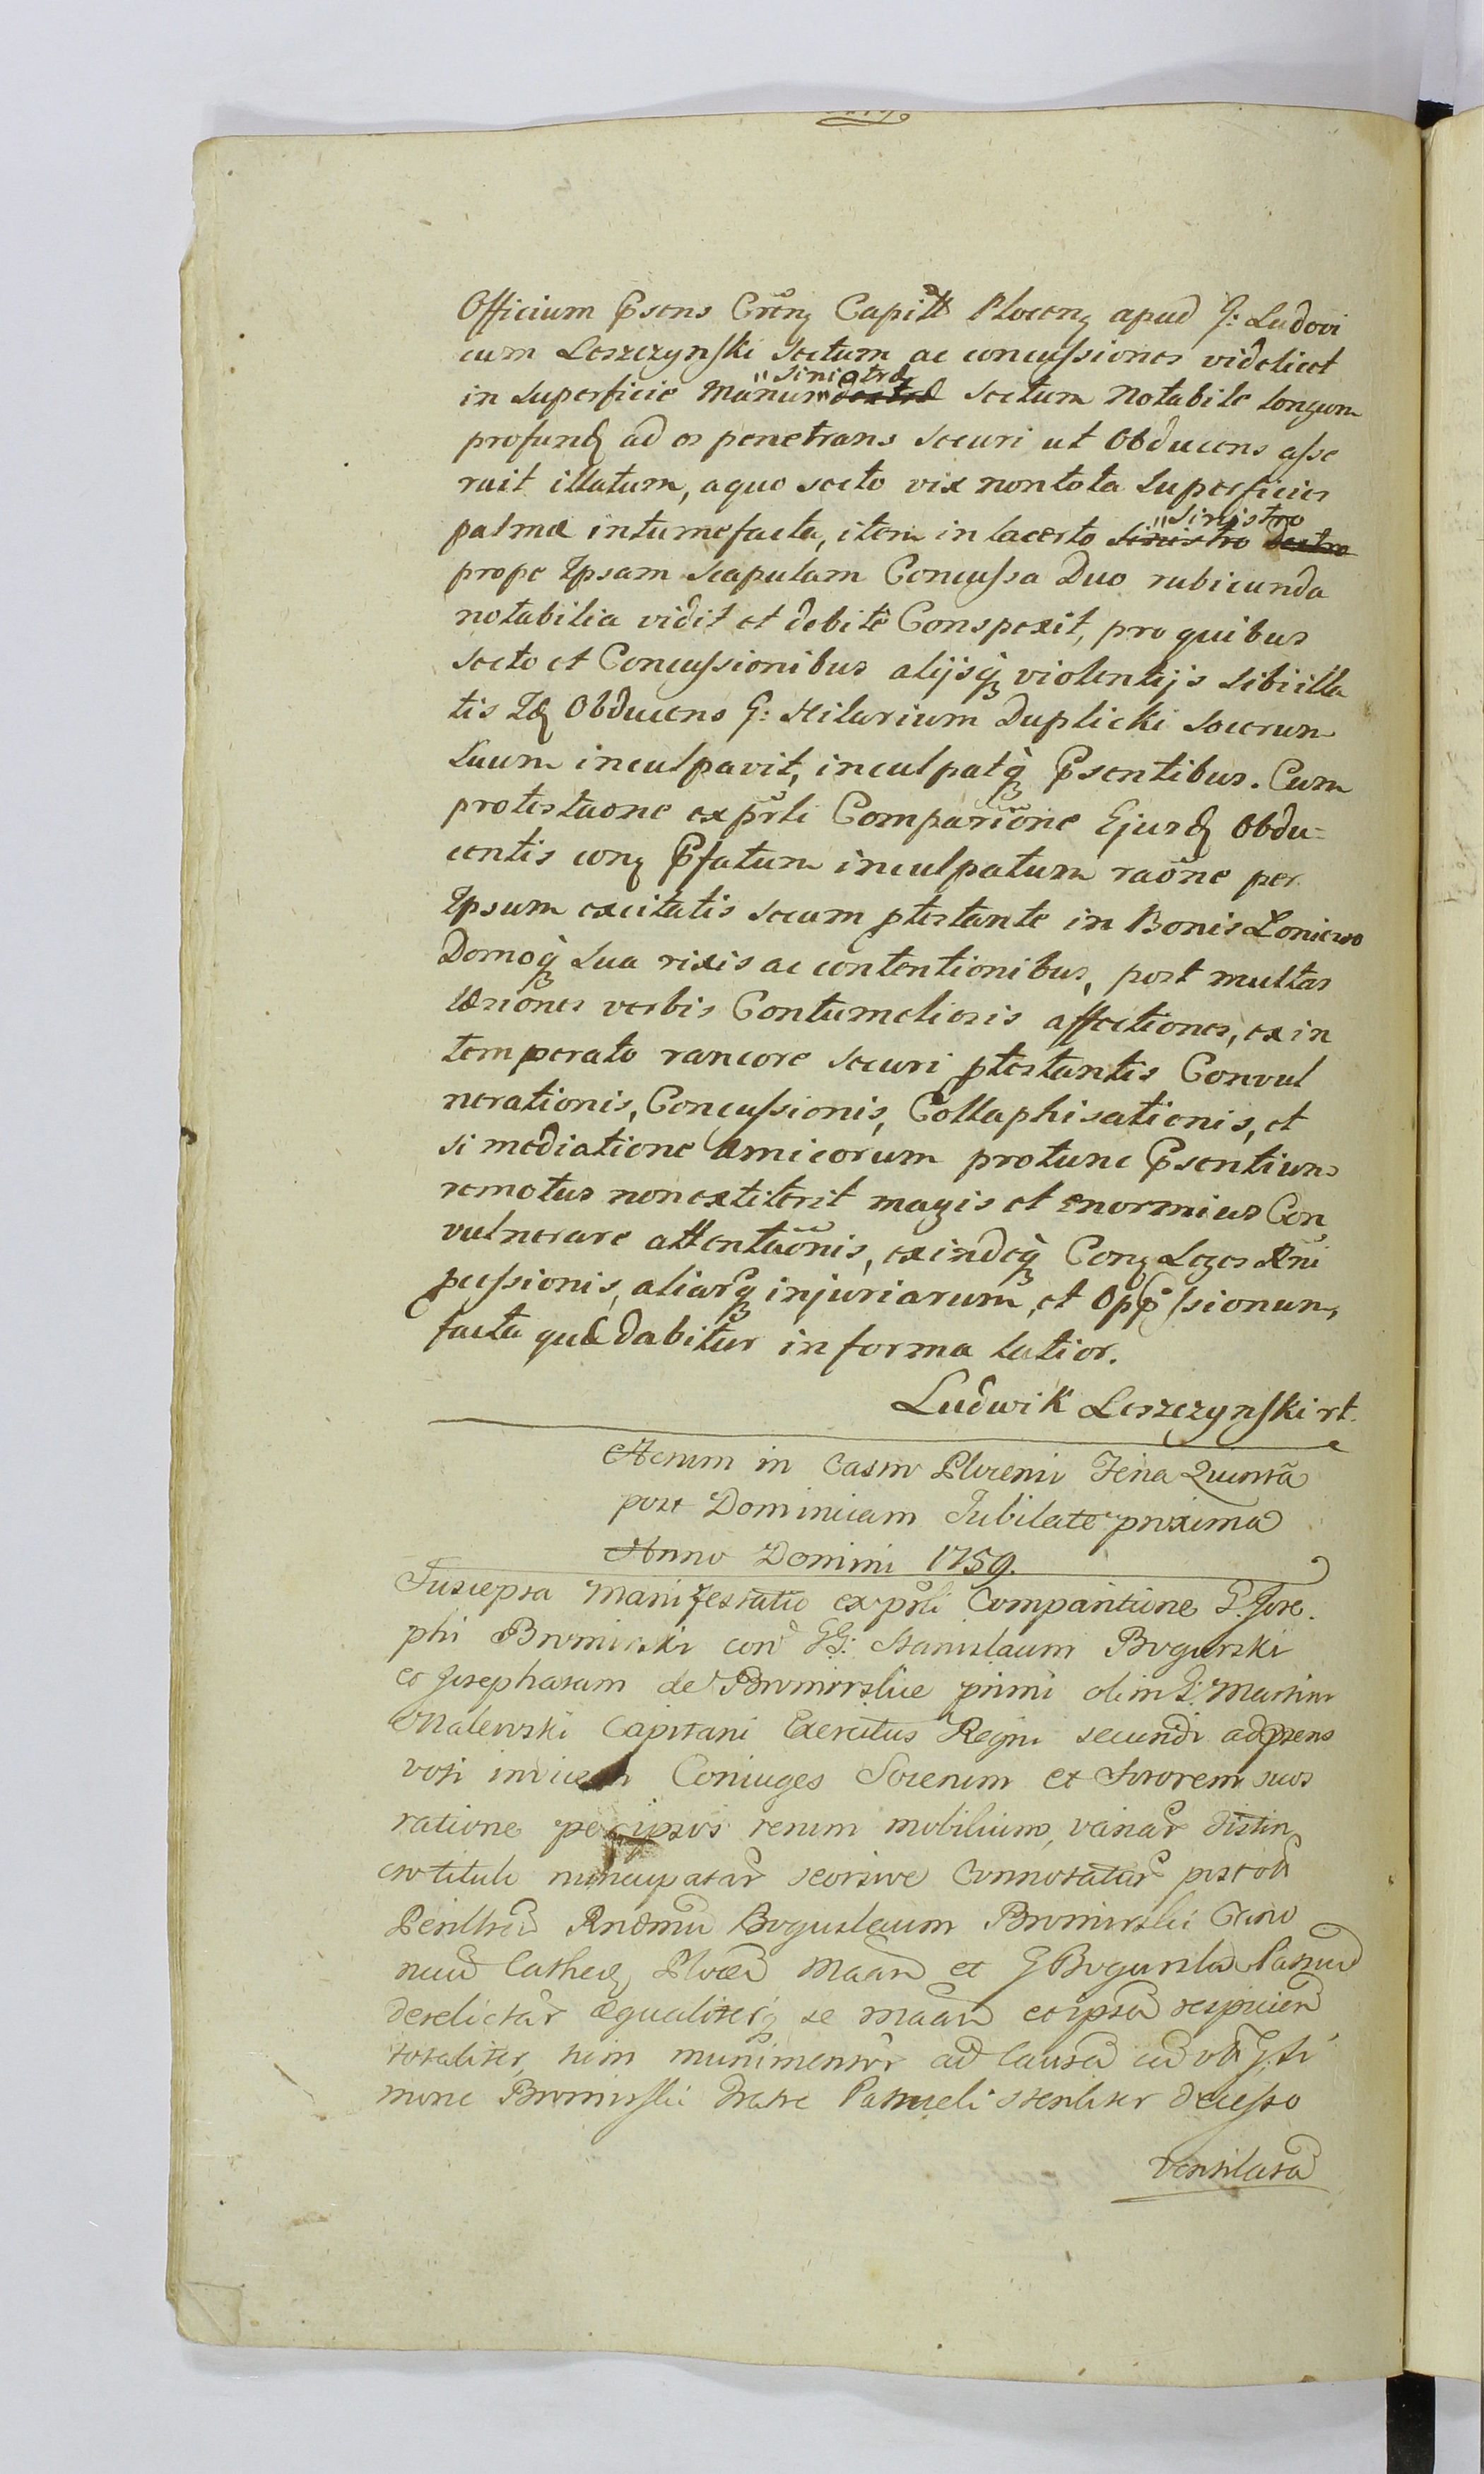 Officium Psens Crenz Capitt Plocenz apud G: Ludovi
cum Leszczynski Sectum ac concussiones videlicet
in Superficie Manus "sinistræ" dextræ Sectum Notabile longum
profund ad os penetrans Securi ut Obducens asse
ruit illatum, a quo secto vix non tota Superficies
palmæ intumefacta, item in lacerto sinistro dextro "sinistro
prope Ipsam Scapulam Concussa Duo rubicunda
notabilia vidit et debite Conspexit, pro quibus
Secto et Concussionibus alijsq violentijs Sibi illa
tis Id Obducens G: Hilarium Duplicki Socerum
Suum inculpavit, inculpatq Psentibus. Cum
protestaone ex prsli Comparione Ejusd Obdu=
centis conz Pfatum inculpatum raone per
Ipsum excitatis Secum ptestante in Bonis Loniewo
Domoq Sua rixis ac contentionibus, post multas
læsiones verbis Contumeliosis affectiones, ex in
temperato rancore Securi ptestantis Convul
nerationis, Concussionis, Collaphisationis, et
si mediatione Amicorum protunc Psentium
remotus non extiterit magis et enormius Con
vulnerare attentaonis, exindeq Conz Leges Rni
pcussionis, aliarq injuriarum, et Oppssionum,
facta quæ dabitur in forma latior.
Ludwik Leszczynski rt.
Actum in Castro Plocensi Feria Quinta
post Dominicam Jubilate proxima
Anno Domini 1759.
Suscepta Manifestatio ex prsli Comparitione G. Jose.
phi Bromirski con GG: Stanislaum Bogurski
et Josepharam de Bromirskie primi olim G: Martini
Malewski Capitani Exercitus Regni secundi ad prens
voti invicem Coniuges Socerum et Sororem suos
ratione per ipsos rerum mobilium, variar distin
cto titulo nuncupatar seorsive Connotatar post olt
Perillrem Rndmu Boguslaum Bromirski Cano
ncum Cathed Ploce Maan et G Bogurska Patruu
derelictar æqualiterq se maan et ipsa respicien
totaliter, tum munimentor ad Causa cu olt G: Si
mone Bromirski Fratre Patrueli steriliter decesso
Ventilata